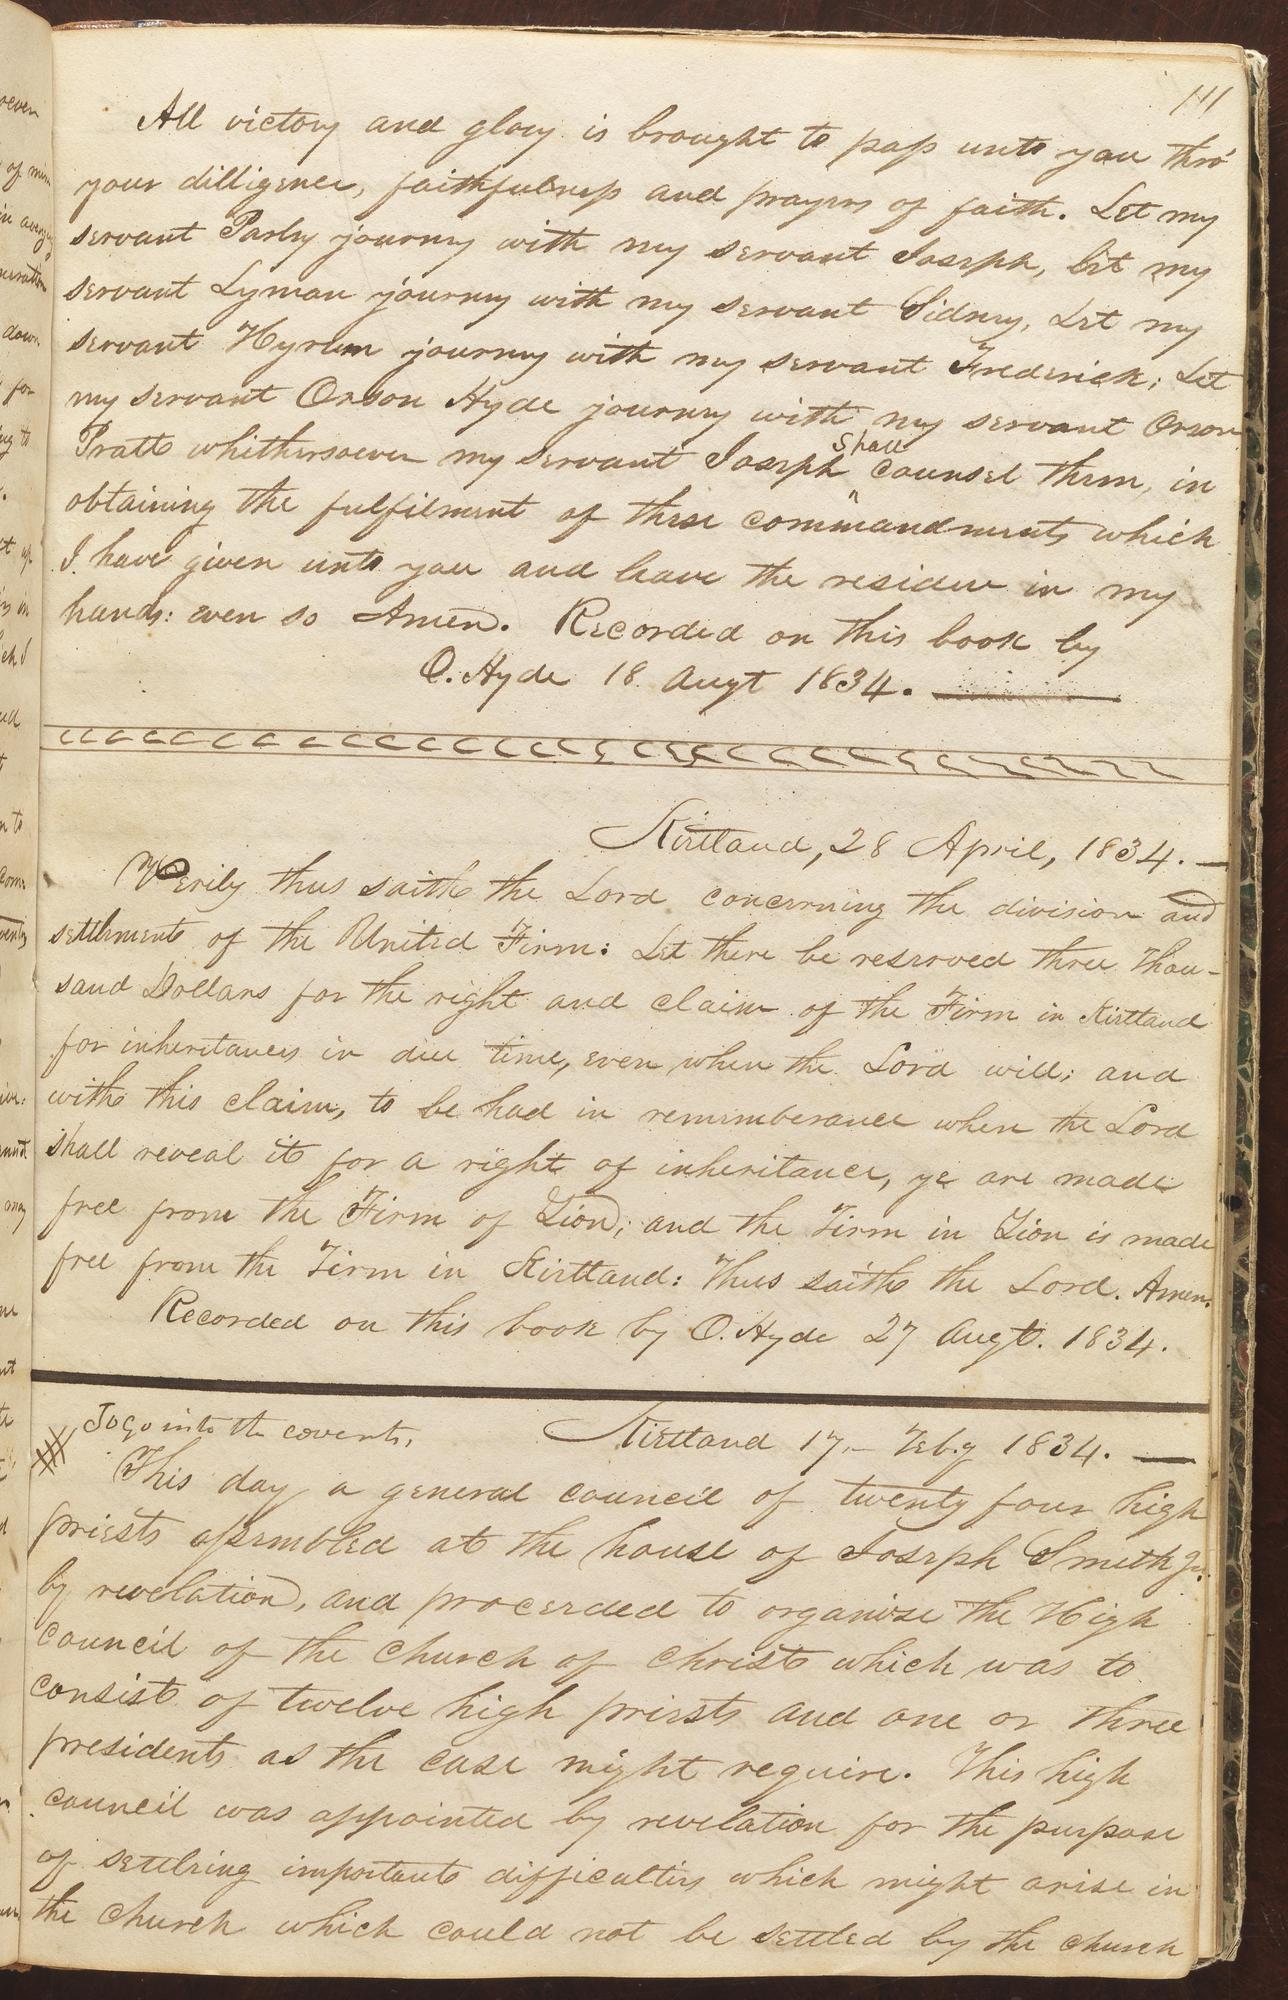 111
All victory and glory is brought to pass unto you thro'
your dilligence, faithfulness and prayers of faith. Let my
servant Parley journey with my servant Joseph, let my
servant Lyman journey with my servant Sidney, Let my
servant Hyrum journey with my servant Frederick; Let
my servant Orson Hyde journey with my servant Orson
Pratt whithersoever my servant Joseph shall counsel them, in
obtaining the fulfilment of these commandments which
I have given unto you and leave the residue in my
hands: even so Amen. Recorded on this book by
O. Hyde 18 Augt 1834.
Kirtland, 28 April, 1834.
Verily thus saith the Lord concerning the division and
settlements of the United Firm: Let there be reserved three Thou-
sand Dollars for the right and claim of the Firm in Kirtland
for inheritances in due time, even when the Lord will; and
with this claim, to be had in rememberance when the Lord
shall reveal it for a right of inheritance, ye are made
free from the Firm of Zion; and the Firm in Zion is made
free from the Firm in Kirtland: Thus saith the Lord. Amen.
Recorded on this book by O. Hyde 27 Augt. 1834.
To go into the covents.
Kirtland 17 - Feby 1834.
This day a general council of twenty four high
priests assembled at the house of Joseph Smith Jr.
by revelation, and proceeded to organize the High
council of the church of christ which was to
consist of twelve high priests and one or three
presidents as the case might require. This high
council was appointed by revelation for the purpose
of settleing important difficulties which might arise in
the church which could not be settled by the church